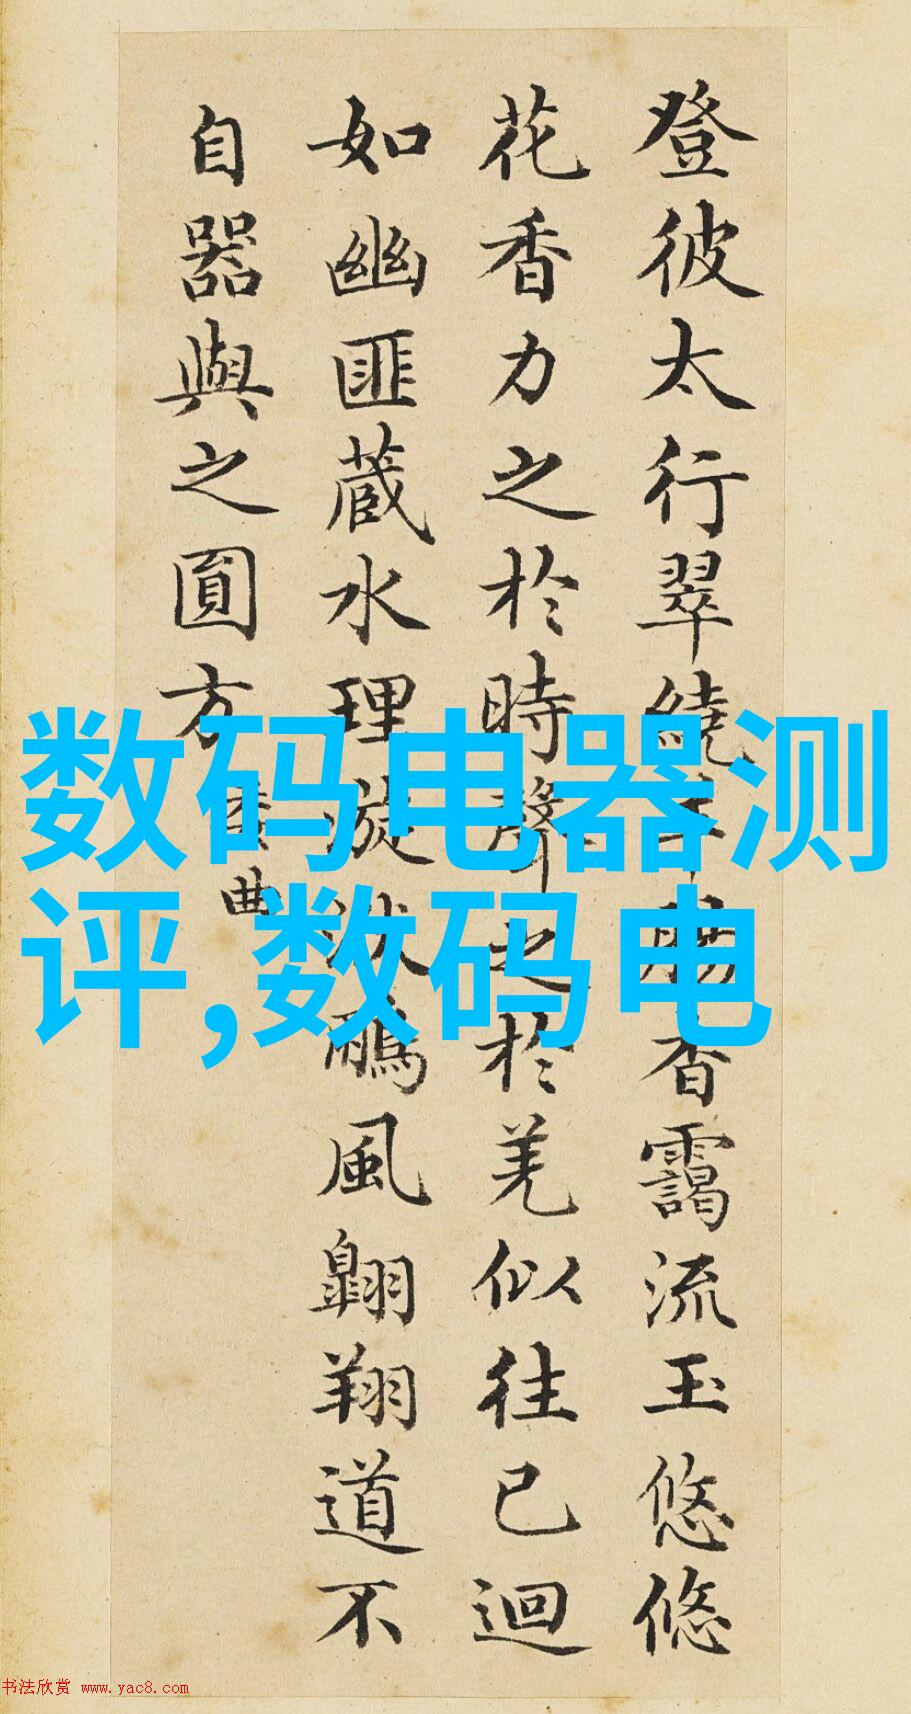 登彼太行翠繞羊腸杳靄流玉悠悠
花香力之於時聲之於羌似往已迴
如幽匪蔵水理漩洑鵬風翺翔道不
自器與之圓方
委曲
数码电器测
评,数码电
书法欣赏 www.yac8.com